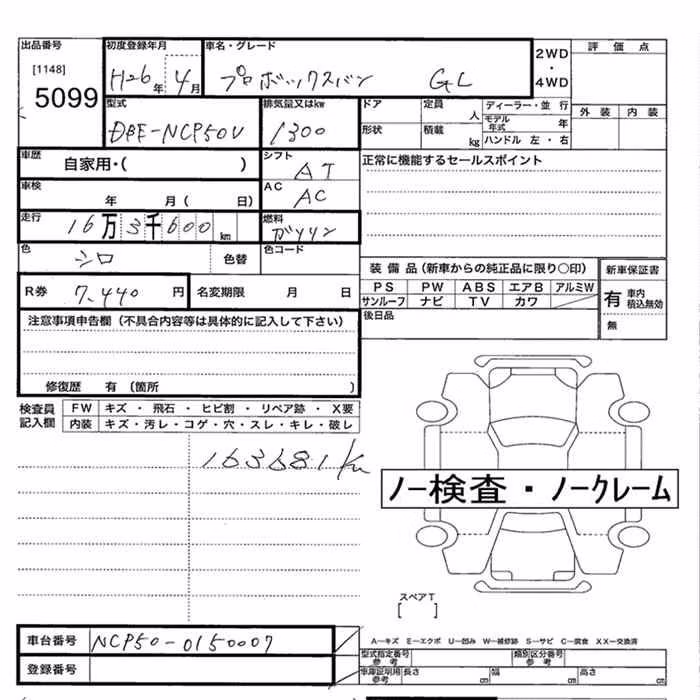 出品番号 初度登録年月 車名・グレード 2WD・4WD 評価点
[1148]
5099
H26年 4月 プロボックスバン GL
外装 内装
型式 排気量又はkw ドア 定員 人 ディーラー・並行
DBE-NCP50V 1300 形状 積載 kg モデル年式 年
ハンドル 左・右
車歴 自家用・( ) シフト AT 正常に機能するセールスポイント
車検 年 月( 日) AC AC
走行 16万3千600km 燃料 ガソリン
色 シロ 色替 色コード
装備品(新車からの純正品に限り〇印) 新車保証書
R券 7,440円 名変期限 月 日 PS PW ABS エアB アルミW
サンルーフ ナビ TV カワ 有 車内積込無効
後日品 無
注意事項申告欄(不具合内容等は具体的に記入して下さい)
修復歴 有(箇所 )
検査員記入欄 FW キズ・飛石・ヒビ割・リペア跡・X要
内装 キズ・汚レ・コゲ・穴・スレ・キレ・破レ
163681Km
ノー検査・ノークレーム
スペアT
[ ]
車台番号 NCP50-0150007 A-キズ E-エクボ U-凹み W-補修跡 S-サビ C-腐食 XX-交換済
型式指定番号 参考 類別区分番号 参考
登録番号 車庫証明用 参考 長さ cm 幅 cm 高さ cm